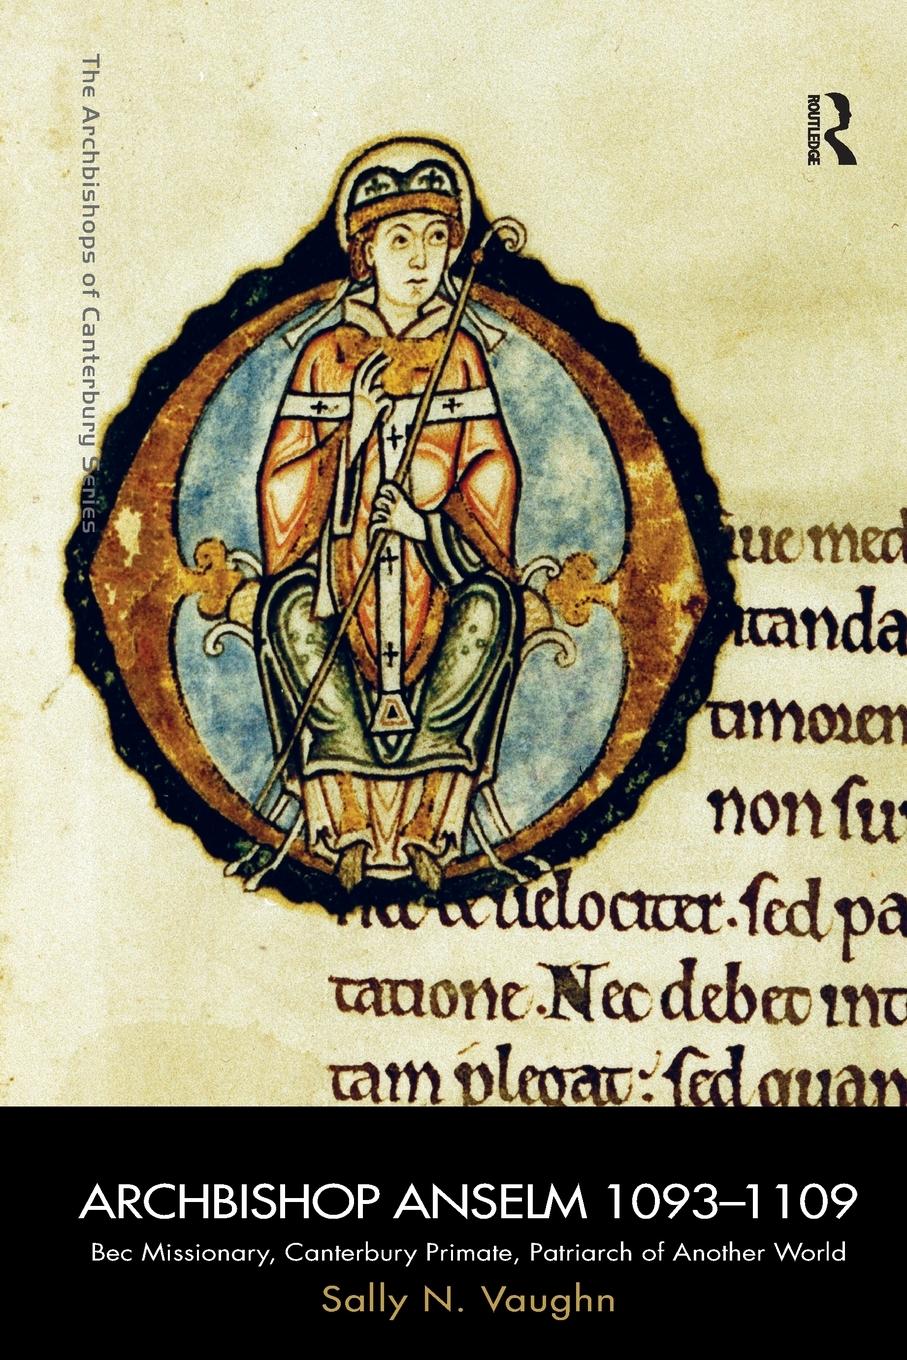 The Archbishops of Canterbury Series
ROUTLEDGE
med
tanda
timoren
non sur
uelociter. sed pa
tatione. Nec debet int
tam plegat: sed quam
ARCHBISHOP ANSELM 1093–1109
Bec Missionary, Canterbury Primate, Patriarch of Another World
Sally N. Vaughn